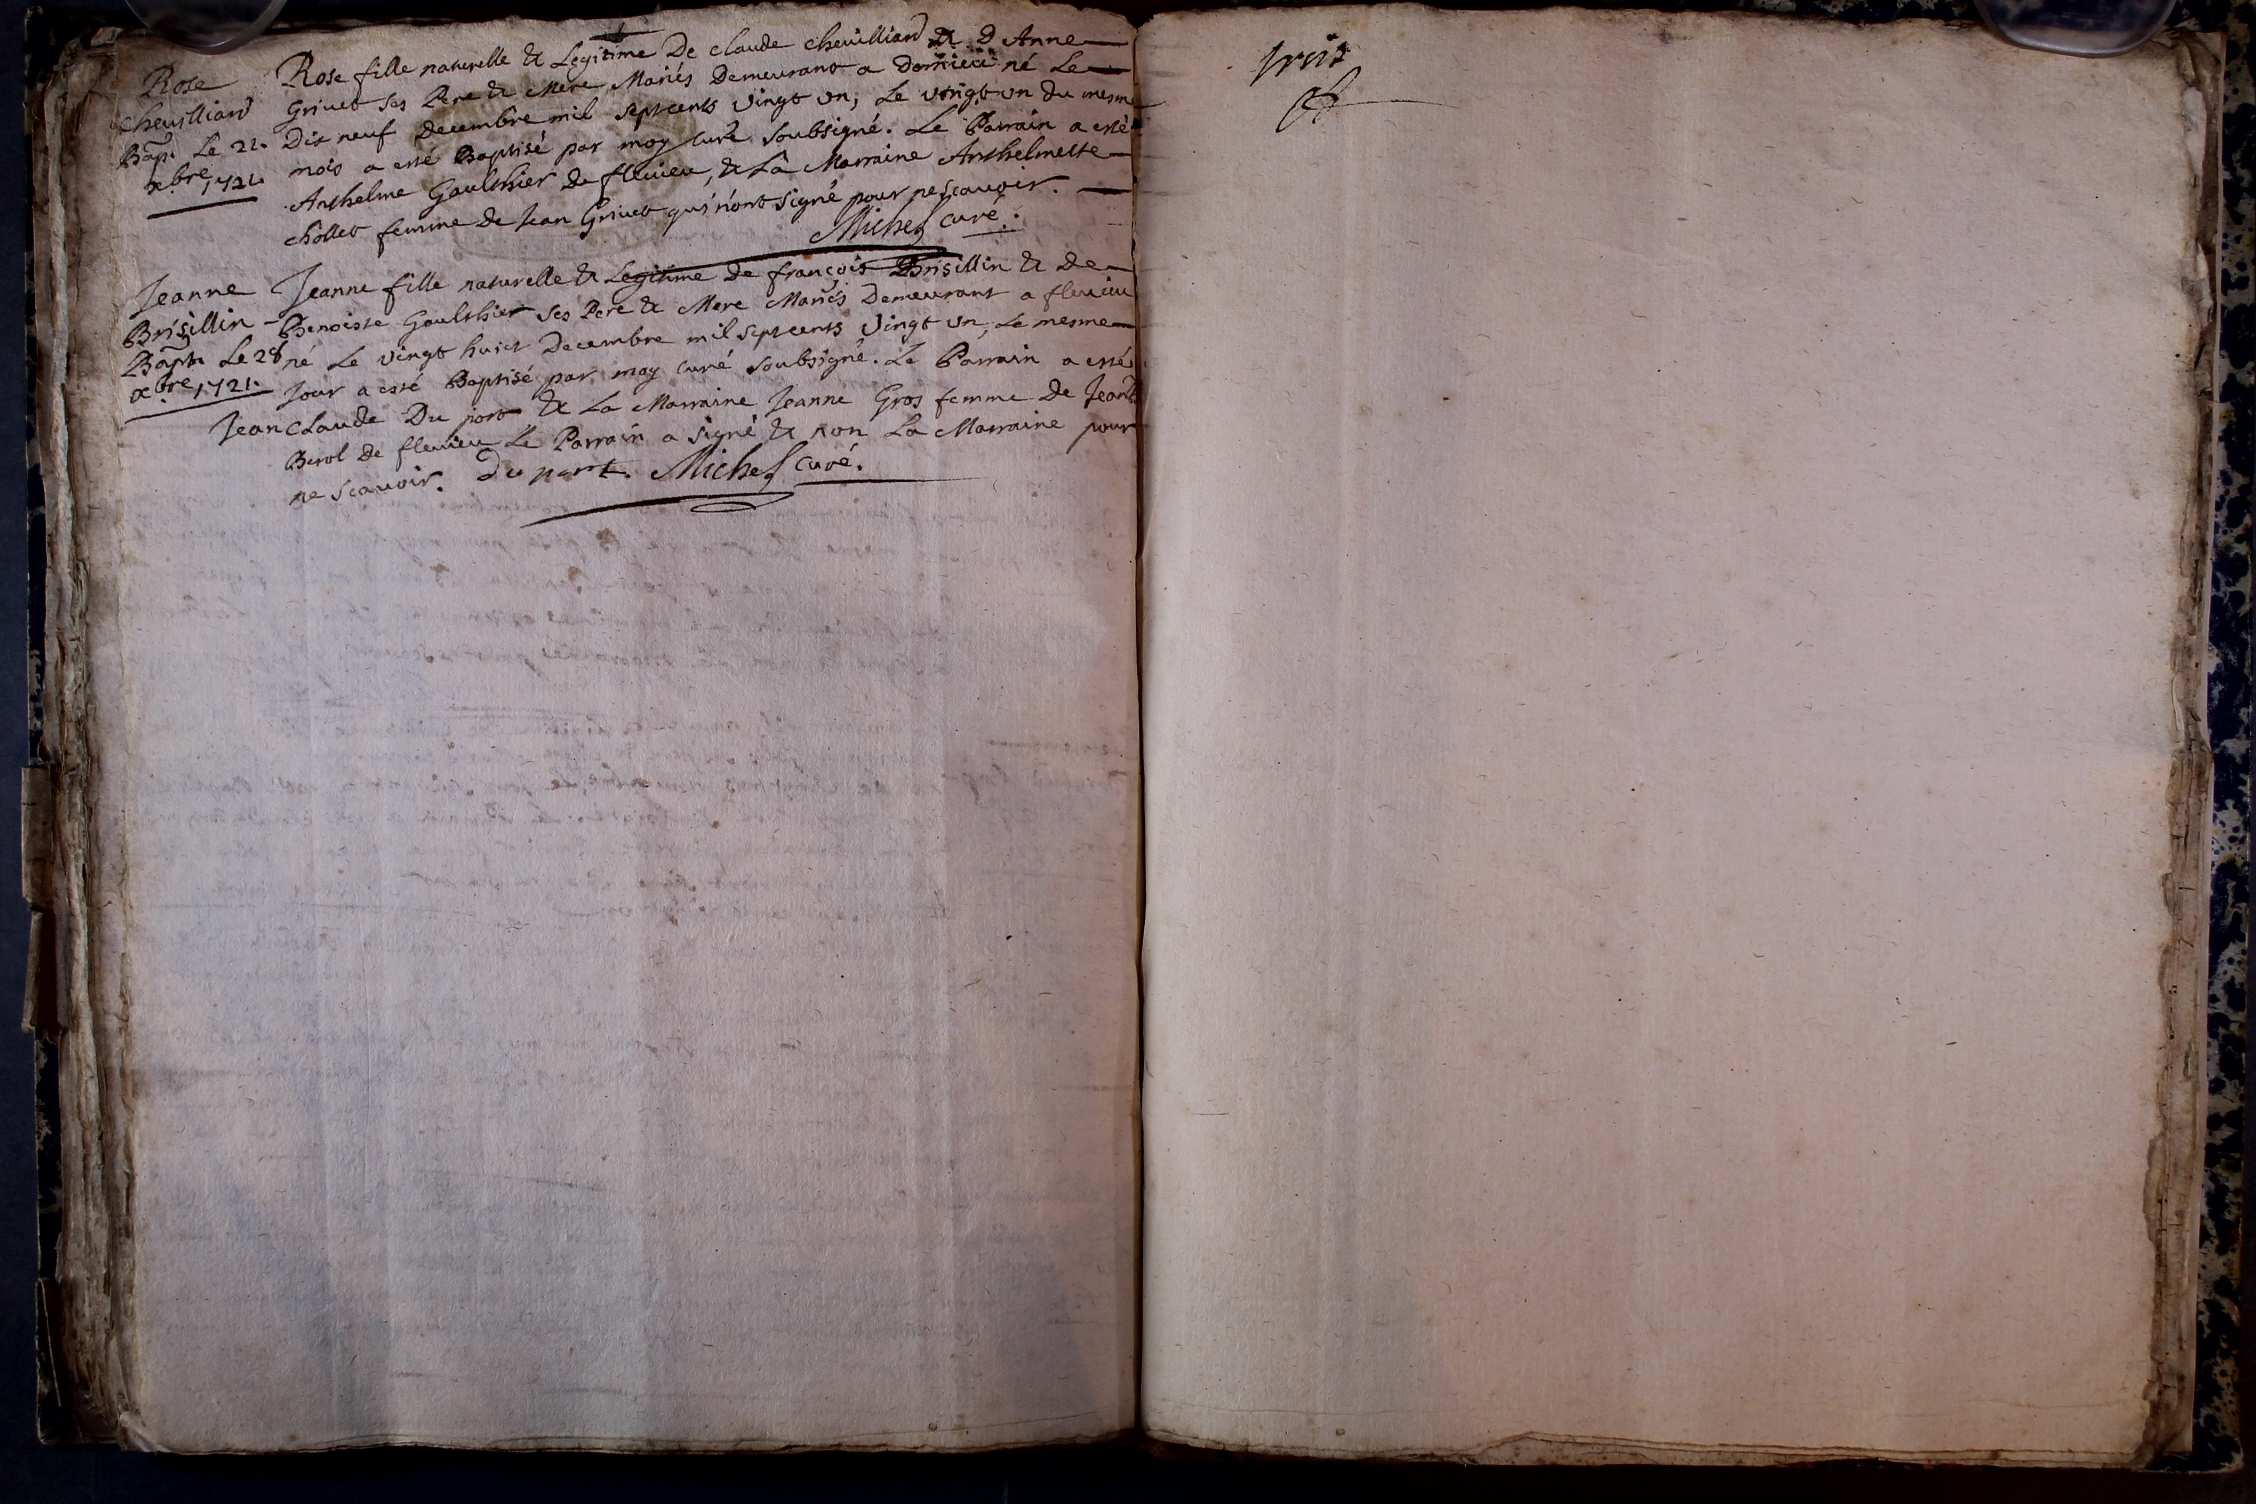 Rose
Cheuilliard
Bap. Le 21.
xbre 1721.
Rose fille naturelle & Legitime De claude cheuilliard & d Anne
Griuet ses Pere & Mere Mariés Demeurant a Dornieu né Le
Dix neuf decembre mil septcents Vingt Vn, Le Vingt Vn du mesme
mois a esté Baptisé par moy curé soubsigné. Le Parrain a esté
Anthelme Gaulthier de fleuieu, & La Marraine Anthelmette
chollet femme de Jean Griuet qui n'ont signé pour ne scauoir.
Michel curé.
Jeanne
Brisillin
Bapt. Le 28
xbre 1721.
Jeanne fille naturelle & Legitime de françois Brisillin & de
Benoiste Gaulthier ses Pere & Mere Mariés Demeurant a fleuieu
né Le Vingt huict Decembre mil septcents Vingt Vn, Le mesme
Jour a esté Baptisé par moy curé soubsigné. Le Parrain a esté
Jean Claude Du port & La Marraine Jeanne Gros femme de Jean
Berol de fleuieu Le Parrain a signé & non La Marraine pour
ne scauoir. Duport. Michel curé.